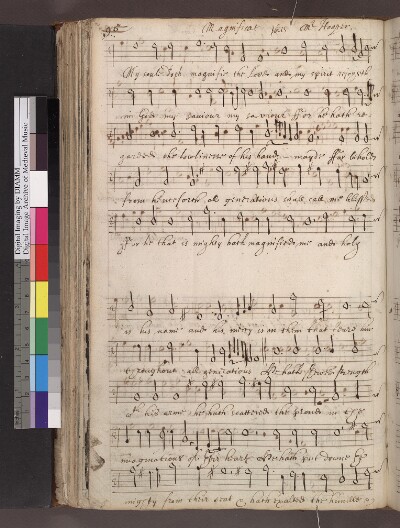 Magnificat Mr Hooper.
My soule doth magnifie the Lord and my spirit rejoyceth
in God my Saviour my saviour ffor he hath re
garded the lowlines of his hand mayde ffor behold
from henceforth al generations shall call me blessed
ffor he that is mighty hath magnified me and holy
is his name and his mercy is on them that feare him
throughout all generations He hath shewed strength
wth his arme he hath scattered the proude in
imaginations of their harts He hath put downe
mighty from their seat & hath exalted the humble
Digital Imaging by DIAMM
Digital Image Archive of Medieval Music